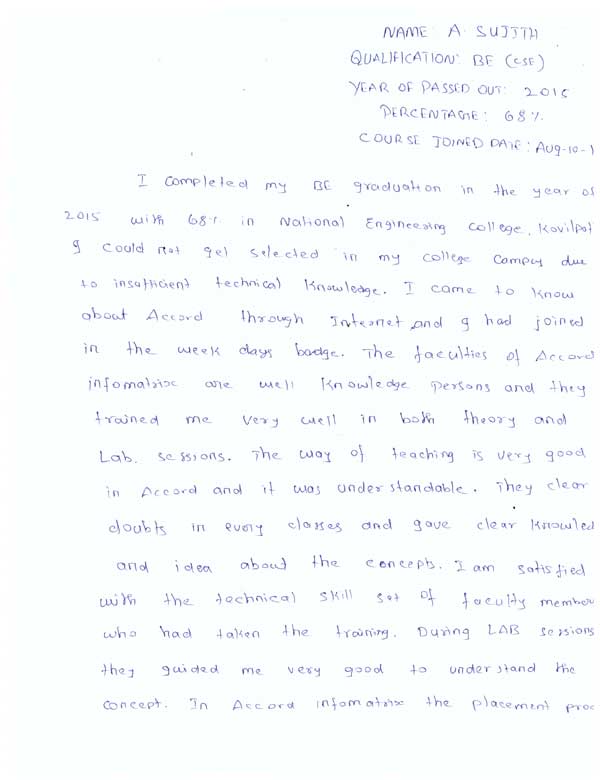 NAME: A SUJITH
QUALIFICATION: BE (CSE)
YEAR OF PASSED OUT: 2015
PERCENTAGE: 68%
COURSE JOINED DATE: AUG-10-1
I completed my BE graduation in the year of
2015 with 68% in National Engineering college, Kovilpat
I could not get selected in my college campus due
to insufficient technical knowledge. I came to know
about Accord through Internet and I had joined
in the week days badge. The faculties of Accord
infomatrix are well knowledge persons and they
trained me very well in both theory and
Lab. sessions. The way of teaching is very good
in Accord and it was understandable. They clear
doubts in every classes and gave clear knowled
and idea about the concepts. I am satisfied
with the technical skill set of faculty member
who had taken the training. During LAB sessions
they guided me very good to understand the
concept. In Accord infomatrix the placement proc